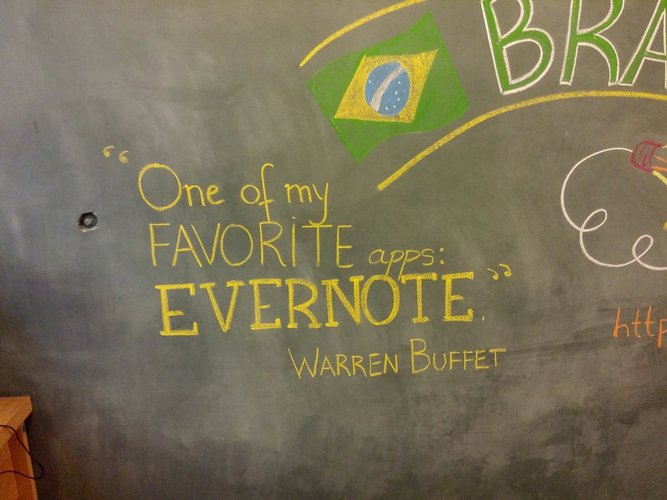 BRA
“One of my
FAVORITE apps:
EVERNOTE.”
WARREN BUFFET
http